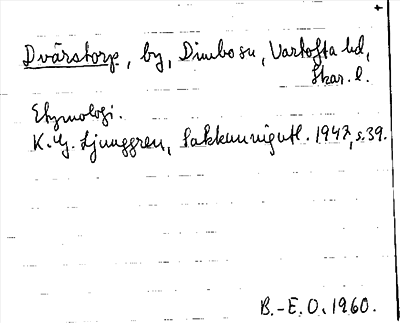 Dvärstorp, by, Dimbo sn, Vartofta hd,
Skar. l.
Etymologi.
K. G. Ljunggren, Sakkunnigutl. 1947, s. 39.
B.-E. O. 1960.